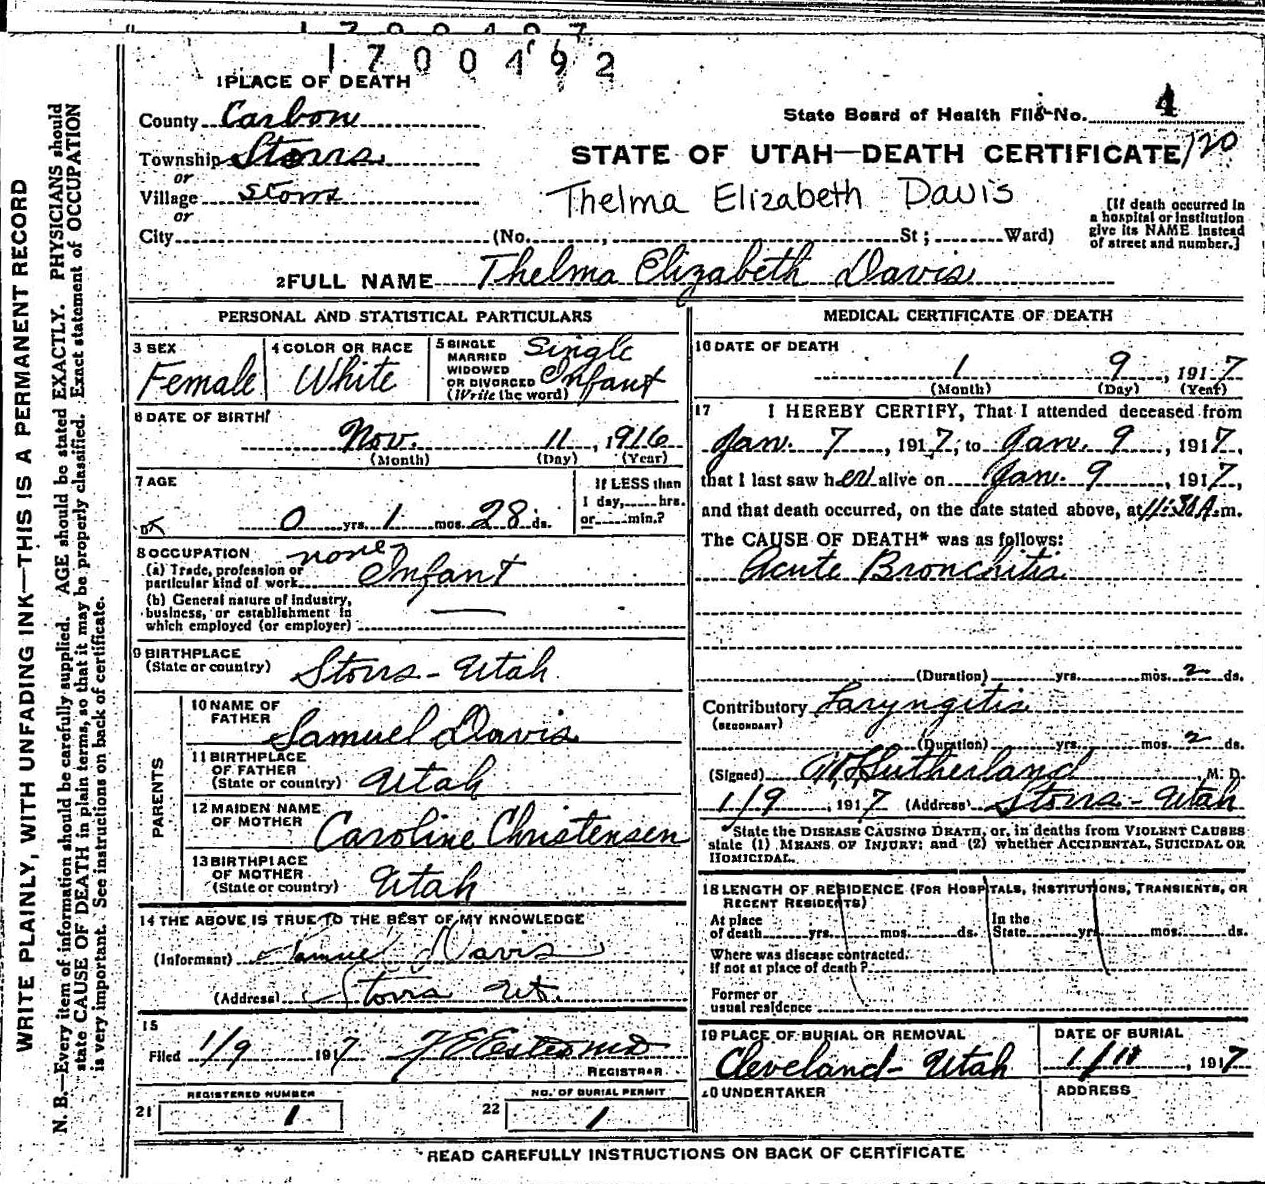 1700492
1 PLACE OF DEATH
County Carbon
State Board of Health File No. 4
Township Storrs
STATE OF UTAH—DEATH CERTIFICATE 120
or
Village Storrs
Thelma Elizabeth Davis
[If death occurred in a hospital or institution give its NAME instead of street and number.]
or
City (No. , St; Ward)
2 FULL NAME Thelma Elizabeth Davis
PERSONAL AND STATISTICAL PARTICULARS
3 SEX
Female
4 COLOR OR RACE
White
5 SINGLE
MARRIED
WIDOWED
OR DIVORCED
(Write the word)
Single
Infant
6 DATE OF BIRTH
Nov. 11, 1916
(Month) (Day) (Year)
7 AGE
0 yrs. 1 mos. 28 ds.
If LESS than
1 day, hrs.
or min.?
8 OCCUPATION
(a) Trade, profession or
particular kind of work none Infant
(b) General nature of industry,
business, or establishment in
which employed (or employer)
9 BIRTHPLACE
(State or country) Storrs - Utah
PARENTS
10 NAME OF
FATHER Samuel Davis
11 BIRTHPLACE
OF FATHER
(State or country) Utah
12 MAIDEN NAME
OF MOTHER Caroline Christensen
13 BIRTHPLACE
OF MOTHER
(State or country) Utah
14 THE ABOVE IS TRUE TO THE BEST OF MY KNOWLEDGE
(Informant) Samuel Davis
(Address) Storrs Ut.
15
Filed 1/9 1917
REGISTRAR
REGISTERED NUMBER
21 1
NO. OF BURIAL PERMIT
22 1
MEDICAL CERTIFICATE OF DEATH
16 DATE OF DEATH
1 9, 1917
(Month) (Day) (Year)
17 I HEREBY CERTIFY, That I attended deceased from
Jan. 7, 1917, to Jan. 9, 1917,
that I last saw her alive on Jan. 9, 1917,
and that death occurred, on the date stated above, at 11:30 A.m.
The CAUSE OF DEATH* was as follows:
Acute Bronchitis
(Duration) yrs. mos. 2 ds.
Contributory Laryngitis
(SECONDARY)
(Duration) yrs. mos. 2 ds.
(Signed) Sutherland, M. D.
1/9, 1917 (Address) Storrs - Utah
*State the DISEASE CAUSING DEATH, or, in deaths from VIOLENT CAUSES
state (1) MEANS OF INJURY; and (2) whether ACCIDENTAL, SUICIDAL OR
HOMICIDAL.
18 LENGTH OF RESIDENCE (FOR HOSPITALS, INSTITUTIONS, TRANSIENTS, OR
RECENT RESIDENTS)
At place
of death yrs. mos. ds.
In the
State yrs. mos. ds.
Where was disease contracted.
If not at place of death?
Former or
usual residence
19 PLACE OF BURIAL OR REMOVAL
Cleveland - Utah
DATE OF BURIAL
1/11, 1917
20 UNDERTAKER
ADDRESS
READ CAREFULLY INSTRUCTIONS ON BACK OF CERTIFICATE
WRITE PLAINLY, WITH UNFADING INK—THIS IS A PERMANENT RECORD
N. B.—Every item of information should be carefully supplied. AGE should be stated EXACTLY. PHYSICIANS should
state CAUSE OF DEATH in plain terms, so that it may be properly classified. Exact statement of OCCUPATION
is very important. See instructions on back of certificate.